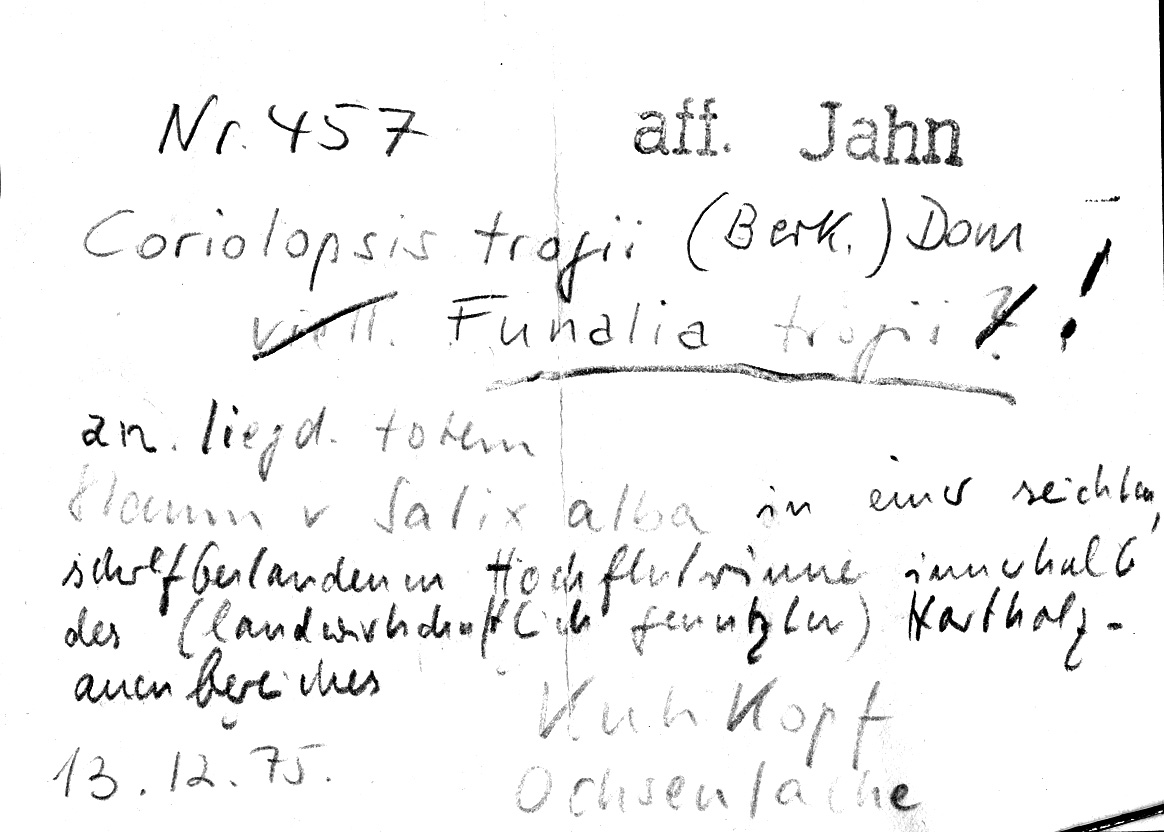 Nr. 457 aff. Jahn
Coriolopsis trogii (Berk.) Dom
viell. Funalia trogii ? !
an. liegd. totem
Stamm v Salix alba in einer seichten,
schilfbestandenen Hochflutrinne innerhalb
des (landwirtschaftlich genutzten) Hartholz-
auenbereiches
Kuhkopf
13.12.75.
Ochsenlache